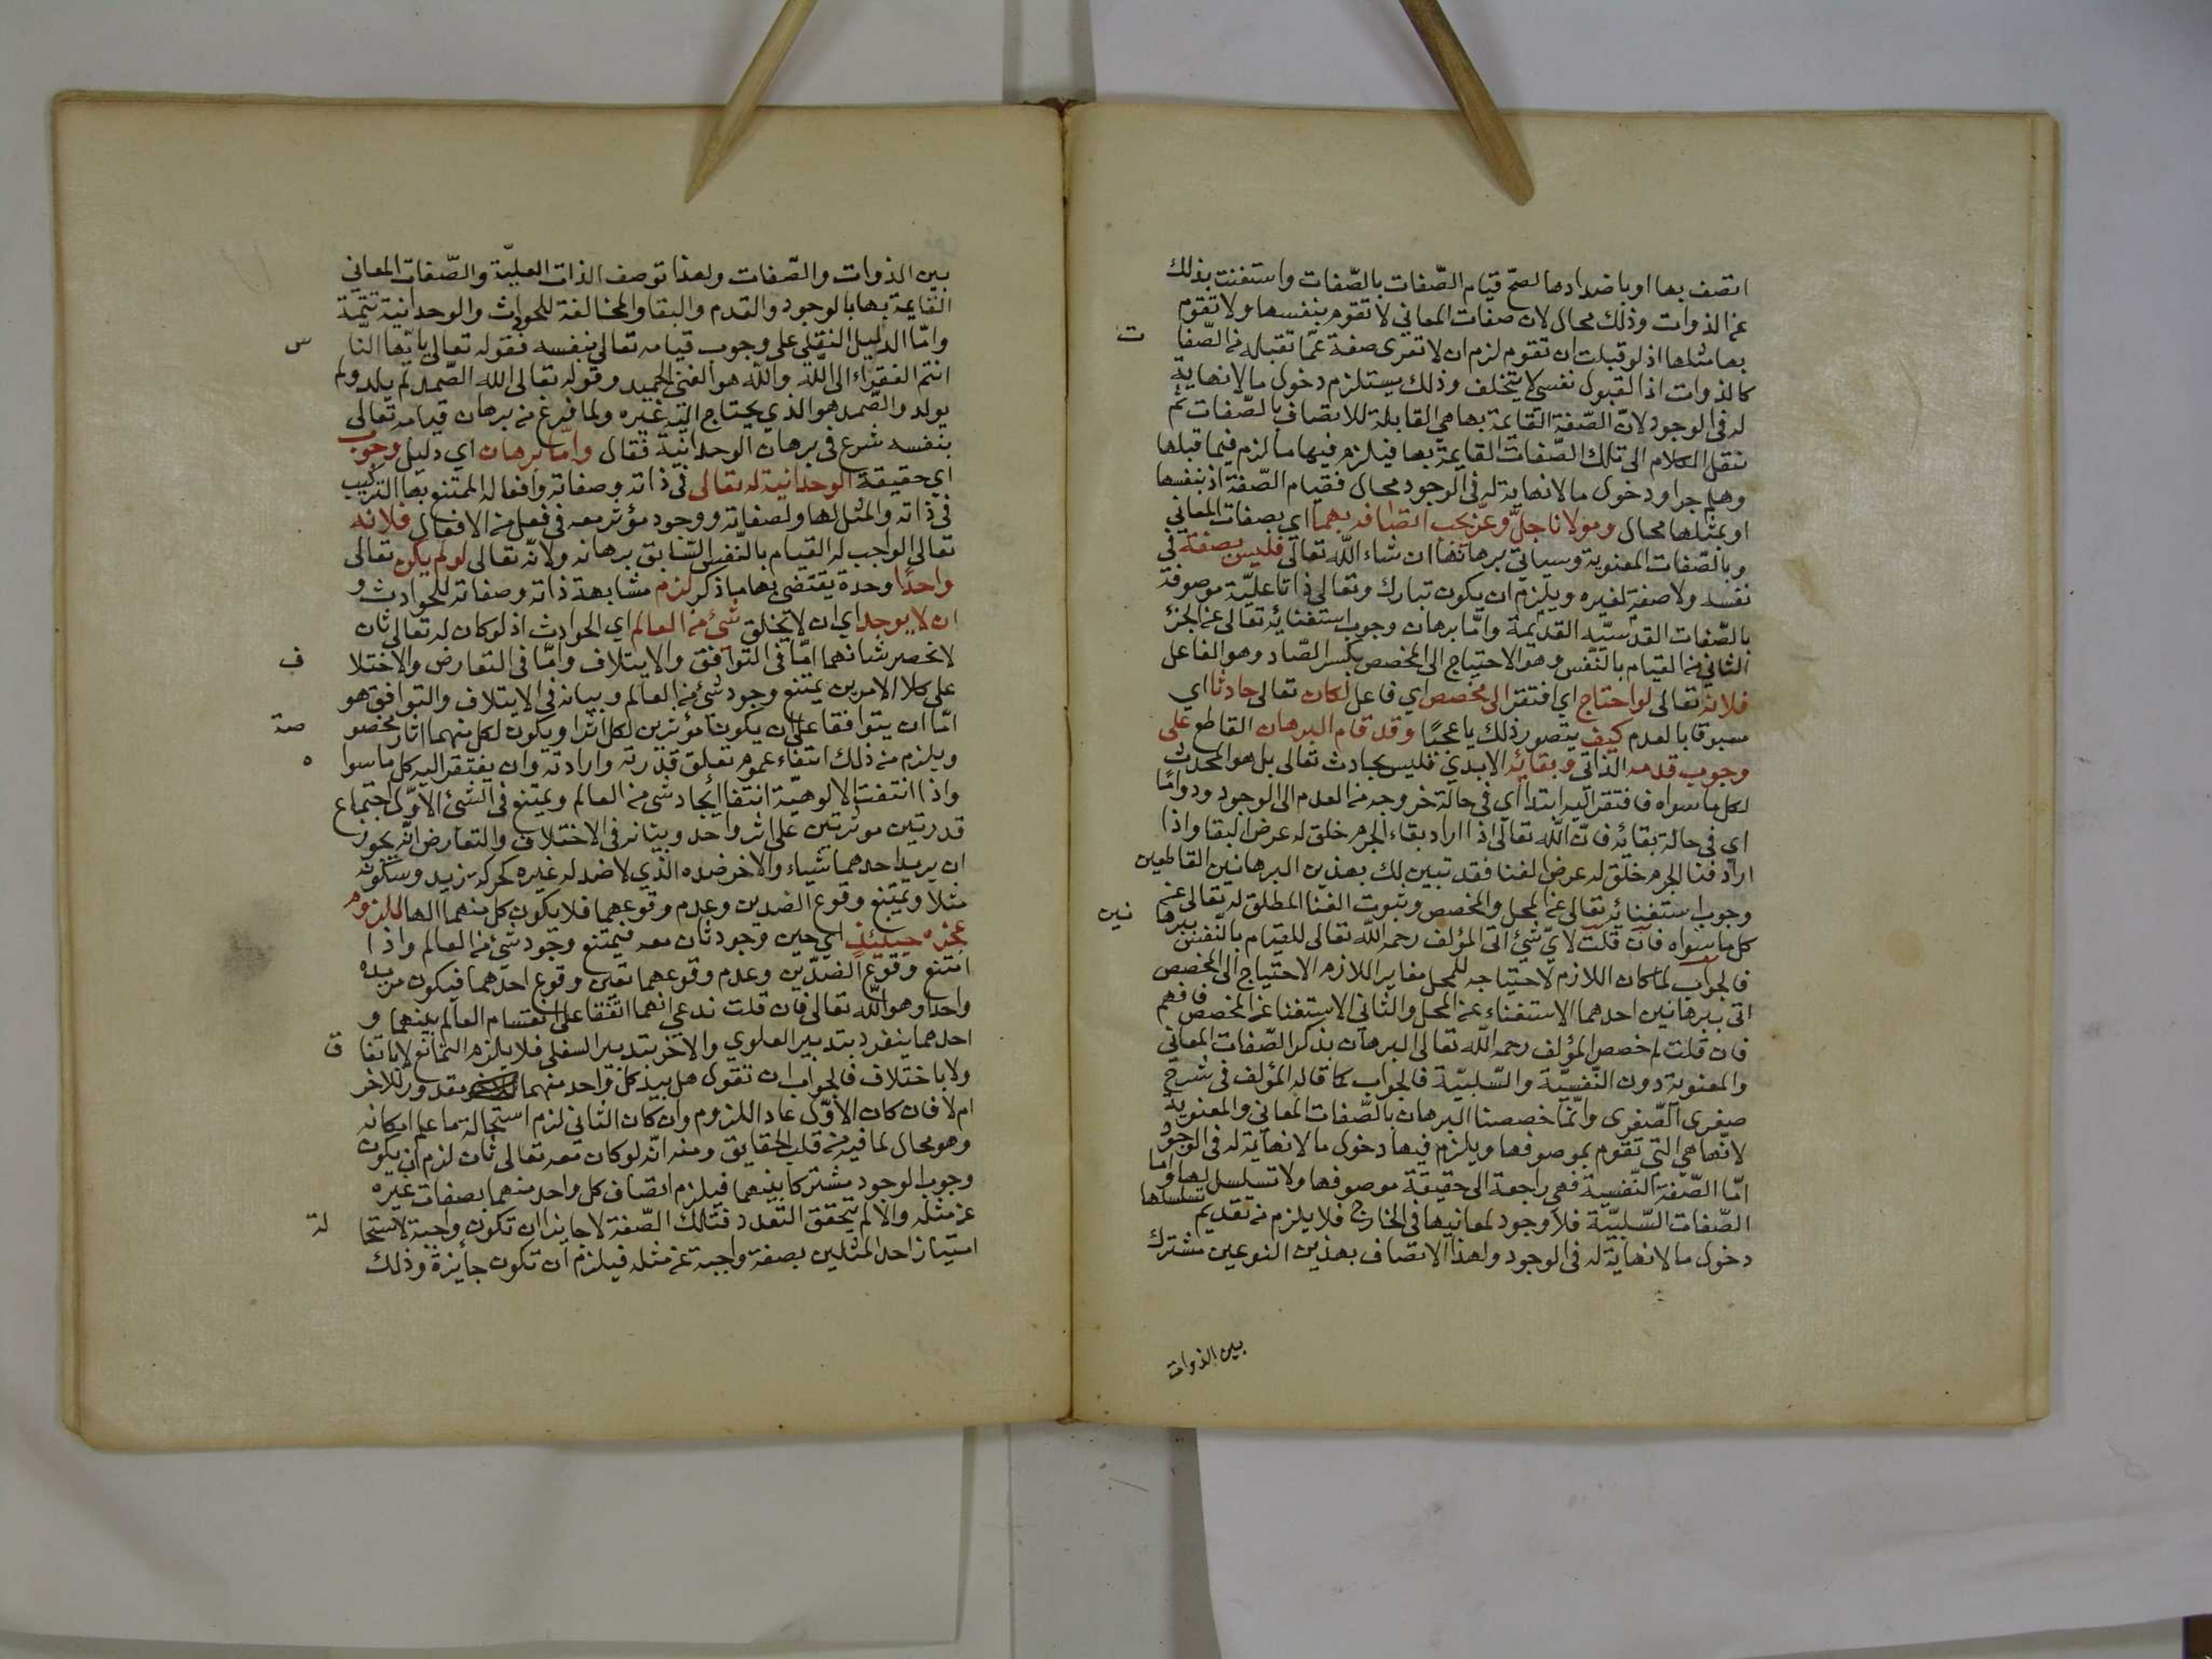 اتصف بها او باضدادها لصح قيام الصّفات بالصّفات واستغنت بذلك
عن الذوات وذلك محال لان صفات المعاني لا تقوم بنفسها ولا تقوم
بها مثلها اذ لو قبلت ان تقوم لزم ان لا تعرى صفة عمّا تقبله من الصّفا ت
كالذوات اذ القبول نفسي لا يتخلف وذلك يستلزم دخول ما لا نهاية
له في الوجود لانّ الصّفة القايمة بها هي القابلة للاتصاف بالصّفات ثم
ننقل الكلام الى تلك الصّفات القايمة بها فيلزم فيها ما لزم فيما قبلها
وهلم جرا ودخول ما لا نهاية له في الوجود محال فقيام الصّفة اذ بنفسها
او بمثلها محال ومولانا جلّ وعزّ يجب اتصافه بهما اي بصفات المعاني
وبالصّفات المعنوية وسياتي برهانها ان شاء اللّه تعالى فليس بصفة في
نفسه ولا صفة لغيره ويلزم ان يكون تبارك وتعالى ذاتا عليّة موصوفة
بالصّفات القدسيّه القديمة وامّا برهان وجوب استغنائه تعالى عن الجزء
الثاني من القيام بالنّفس وهو الاحتياج الى المخصص بكسر الصّاد وهو الفاعل
فلانه تعالى لو احتاج اي افتقر الى مخصص اي فاعل لكان تعالى حادثا اي
مسبوقا بالعدم كيف يتصور ذلك يا عجبًا وقد قام البرهان القاطع على
وجوب قدمه الذاتي وبقائه الابدي فليس بحادث تعالى بل هو المحدث
لكل ما سواه فافتقر اليه ابتداا اي في حالة خروجه من العدم الى الوجود ودوامًا
اي في حالة بقائه فانّ اللّه تعالى اذا اراد بقاء الجرم خلق له عرض البقا واذا
اراد فنا الجرم خلق له عرض الفنا فقد تبين لك بهذين البرهانين القاطعين
وجوب استغنائه تعالى عن المحل والمخصص وثبوت الغنا المطلق له تعالى عن
كل ما سواه فان قلت لايّ شيئ اتى المؤلف رحمه اللّه تعالى للقيام بالنّفس ببرها نين
فالجواب لما كان اللازم لاحتياجه للمحل مغاير اللازم الاحتياج الى المخصص
اتى ببرهانين احدهما الاستغناء عن المحل والثاني الاستغنا عن المخصص فافهم
فان قلت لم خصص المؤلف رحمه اللّه تعالى البرهان بذكر الصّفات المعاني
والمعنوية دون النّفسيّة والسّلبيّة فالجواب كما قاله المؤلف في شرح
صغرى الصّغرى وانّما خصصنا البرهان بالصّفات المعاني والمعنوية
لانّها هي التي تقوم بموصوفها ويلزم فيها دخول ما لا نهاية له في الوجود
امّا الصّفة النّفسية فهي راجعة الى حقيقة موصوفها ولا تسلسل لها واما
الصّفات السّلبيّة فلا وجود لمعانيها في الخارج فلا يلزم من تقديم تسلسلها
دخول ما لا نهاية له في الوجود ولهذا الاتصاف بهذين النوعين مشترك
بين الذوات
بين الذوات والصّفات ولهذا توصف الذات العليّة والصّفات المعاني
القايمة بها بالوجود والقدم والبقا والمخالفة للحوادث والوحدانية تتمّة
وامّا الدليل النقلي على وجوب قيامه تعالى بنفسه فقوله تعالى يا يّها النّا س
انتم الفقراء الى اللّه واللّه هو الغني الحميد وقوله تعالى الله الصّمد لم يلد ولم
يولد والصّمد هو الذي يحتاج اليه غيره ولما فرغ من برهان قيامه تعالى
بنفسه شرع في برهان الوحدانيّة فقال وامّا برهان اي دليل وجوب
اي حقيقة الوحدانية له تعالى في ذاته وصفاته وافعاله الممتنع بها التركيب
في ذاته والمثل لها ولصفاته ووجود مؤثر معه في فعل من الافعال فلانه
تعالى الواجب له القيام بالنّفس السّابق برهانه ولانّه تعالى لو لم يكن تعالى
واحدًا وحدة يقتضي بها ما ذكر لزم مشابهة ذاته وصفاته للحوادث و
ان لا يوجد اي ان لا يخلق شيئ من العالم اي الحوادث اذ لو كان له تعالى ثان
لانحصر شانهما امّا في التوافق والايتلاف وامّا في التعارض والاختلا ف
على كلا الامرين يمتنع وجود شيئ من العالم وبيانه في الايتلاف والتوافق هو
امّا ان يتوافقا على ان يكونا مؤثرين لكل اثرا ويكون لكل منهما اثار مخصو صة
ويلزم من ذلك انتفاء عموم تعلق قدرته وارادته وان يفتقر اليه كل ما سوا ه
واذا انتفت الالوهيّة انتفا ايجاد شي من العالم ويمتنع في الشيئ الاوّل اجتماع
قدرتين موثرتين على اثر واحد وبيانه في الاختلاف والتعارض انّه يجوز
ان يريد احدهما شياء والاخر ضده الذي لا ضد له غيره كحركة زيد وسكونه
مثلا ويمتنع وقوع الضدين وعدم وقوعهما فلا يكون كل منهما الها للزوم
عجزه حينئذٍ اي حين وجود ثان معه فيمتنع وجود شيئ من العالم واذا
امتنع وقوع الضدّين وعدم وقوعهما تعين وقوع احدهما فيكون مريده
واحدا وهو اللّه تعالى فان قلت ندعي انهما اتّفقا على انقسام العالم بينهما و
احدهما ينفرد بتدبير العلوي والاخر بتدبير السفلي فلا يلزم التمانع لا باتفا ق
ولا باختلاف فالجواب ان تقول هل بيد كل واحد منهما مقدور للاخر
ام لا فان كان الاوّل عاد اللزوم وان كان الثاني لزم استحالة ما علم امكانه
وهو محال لما فيه من قلب الحقايق ومنه انّه لو كان معه تعالى ثان لزم ان يكون
وجوب الوجود مشتركا بينهما فيلزم اتصاف كل واحد منهما بصفات غيره
عن مثله والا لم يتحقق التعدد فتلك الصّفة لا جايز ان تكون واجبة لاستحا لة
امتياز احد المثلين بصفة واجبة عن مثله فيلزم ان تكون جايزة وذلك